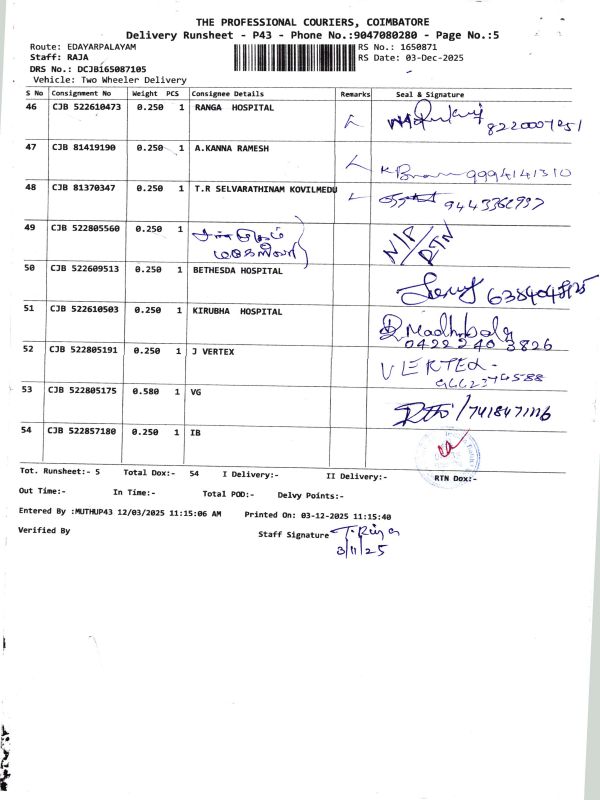 THE PROFESSIONAL COURIERS, COIMBATORE
Delivery Runsheet - P43 - Phone No.:9047080280 - Page No.:5
Route: EDAYARPALAYAM RS No.: 1650871
Staff: RAJA RS Date: 03-Dec-2025
DRS No.: DCJB165087105
Vehicle: Two Wheeler Delivery
S No Consignment No Weight PCS Consignee Details Remarks Seal & Signature
46 CJB 522610473 0.250 1 RANGA HOSPITAL
47 CJB 81419190 0.250 1 A.KANNA RAMESH 9994141310
48 CJB 81370347 0.250 1 T.R SELVARATHINAM KOVILMEDU
49 CJB 522805560 0.250 1 N/P RTN
50 CJB 522609513 0.250 1 BETHESDA HOSPITAL
51 CJB 522610503 0.250 1 KIRUBHA HOSPITAL
0422 240 3826
52 CJB 522805191 0.250 1 J VERTEX VERTEX
53 CJB 522805175 0.580 1 VG
54 CJB 522857180 0.250 1 IB
Tot. Runsheet:- 5 Total Dox:- 54 I Delivery:- II Delivery:- RTN Dox:-
Out Time:- In Time:- Total POD:- Delvy Points:-
Entered By :MUTHUP43 12/03/2025 11:15:06 AM Printed On: 03-12-2025 11:15:40
Verified By Staff Signature
3/11/25